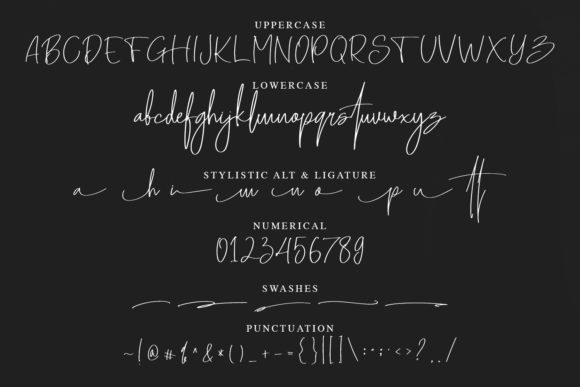 UPPERCASE
ABCDEFGHIJKLMNOPQRSTUVWXYZ
LOWERCASE
abcdefghijklmnopqrstuvwxyz
STYLISTIC ALT & LIGATURE
a h i m n o p u tt
NUMERICAL
0123456789
SWASHES
PUNCTUATION
~ ! @ # % ^ & * ( ) _ + - = { } | [ ] \ : " ; ' < > ? , . /